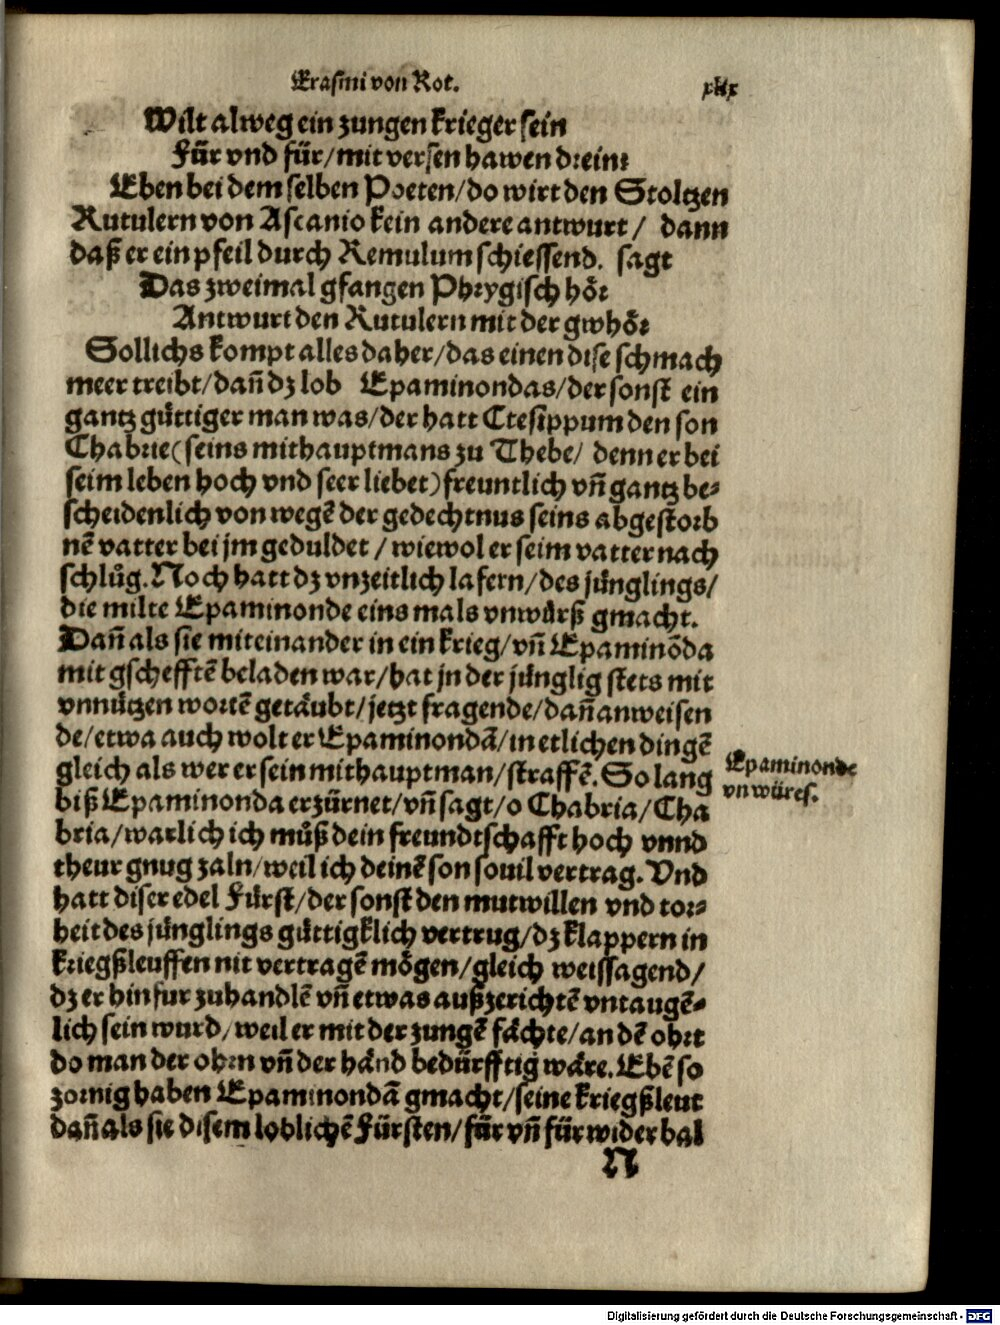 Erasmi von Rot. xlix
Wilt alweg ein zungen krieger sein
Für vnd für/mit versen hawen drein:
Eben bei dem selben Poeten/do wirt den Stoltzen
Rutulern von Ascanio kein andere antwurt/ dann
daß er ein pfeil durch Remulum schiessend. sagt
Das zweimal gfangen Phrygisch hör
Antwurt den Rutulern mit der gwhör
Sollichs kompt alles daher/das einen dise schmach
meer treibt/dañ dz lob Epaminondas/der sonst ein
gantz güttiger man was/der hatt Ctesippum den son
Chabrie(seins mithauptmans zu Thebe/ denn er bei
seim leben hoch vnd seer liebet)freuntlich vñ gantz be⸗
scheidenlich von wegē der gedechtnus seins abgestorb
nē vatter bei jm geduldet/wiewol er seim vatter nach
schlůg. Noch hatt dz vnzeitlich lafern/des jünglings/
die milte Epaminonde eins mals vnwürß gmacht.
Dañ als sie miteinander in ein krieg/vñ Epaminōda
mit gschefftē beladen war/hat jn der jünglig stets mit
vnnützen wortē getäubt/jetzt fragende/dañ anweisen
de/etwa auch wolt er Epaminondā/in etlichen dingē
gleich als wer er sein mithauptman/straffē. So lang
biß Epaminonda erzürnet/vñ sagt/o Chabria/Cha
bria/warlich ich můß dein freundtschafft hoch vnnd
theur gnug zaln/weil ich deinē son souil vertrag. Vnd
hatt diser edel Fürst/der sonst den mutwillen vnd tor⸗
heit des jünglings güttigklich vertrug/dz klappern in
kriegßleuffen nit vertragē mögen/gleich weissagend/
dz er hinfur zuhandlē vñ etwas außzerichtē vntaugē⸗
lich sein wurd/weil er mit der zungē fächte/an dē ohrt
do man der ohrn vñ der händ bedürfftig wäre. Ebē so
zornig haben Epaminondā gmacht/seine kriegßleut
dañ als sie disem loblichē Fürsten/für vñ für widerbal
Epaminonde
vnwüres.
N
Digitalisierung gefördert durch die Deutsche Forschungsgemeinschaft - DFG